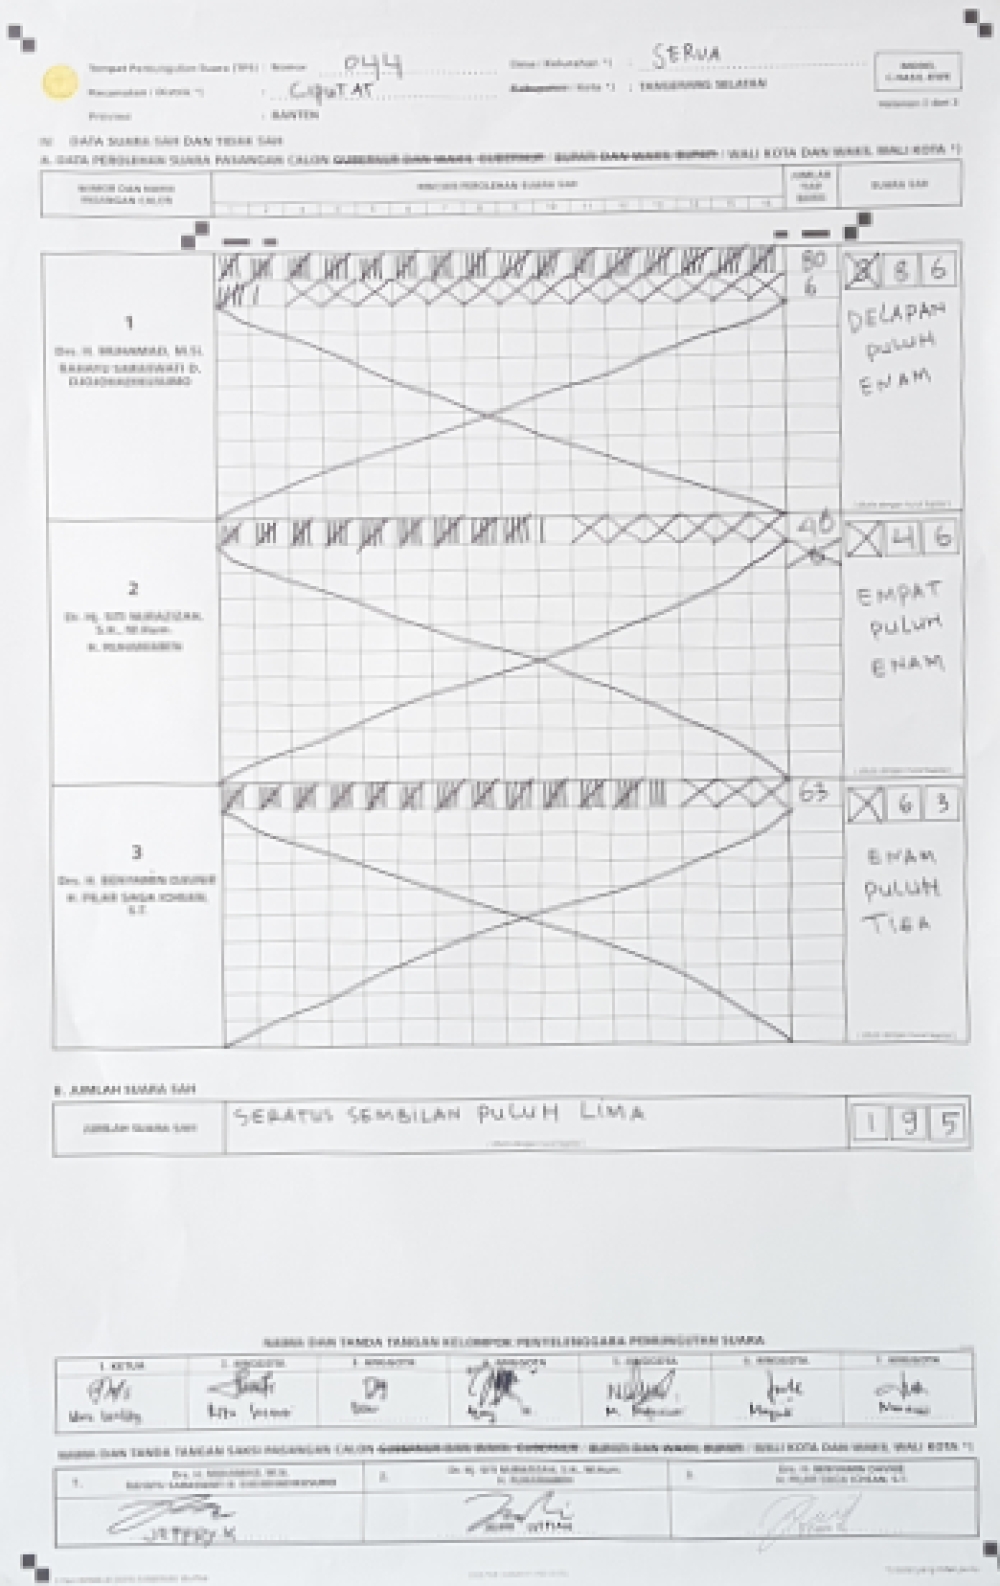 Tempat Pemungutan Suara (TPS) : Nomor 044 Desa / Kelurahan *) : SERUA
Kecamatan / Distrik *) : CIPUTAT Kabupaten / Kota *) : TANGERANG SELATAN
Provinsi : BANTEN
MODEL
C.HASIL-KWK
Halaman 2 dari 2
IV. DATA SUARA SAH DAN TIDAK SAH
A. DATA PEROLEHAN SUARA PASANGAN CALON GUBERNUR DAN WAKIL GUBERNUR / BUPATI DAN WAKIL BUPATI / WALI KOTA DAN WAKIL WALI KOTA *)
NOMOR DAN NAMA
PASANGAN CALON
RINCIAN PEROLEHAN SUARA SAH
JUMLAH
TIAP
BARIS
SUARA SAH
1 2 3 4 5 6 7 8 9 10 11 12 13 14 15 16
1
Drs. H. MUHAMAD, M.Si.
RAHAYU SARASWATI D.
DJOJOHADIKUSUMO
80
6
8 6
DELAPAN
PULUH
ENAM
2
Dr. Hj. SITI NURAZIZAH,
S.H., M.Hum.
H. RUHAMABEN
46
4 6
EMPAT
PULUH
ENAM
3
Drs. H. BENYAMIN DAVNIE
H. PILAR SAGA ICHSAN,
S.T.
63
6 3
ENAM
PULUH
TIGA
B. JUMLAH SUARA SAH
JUMLAH SUARA SAH
SERATUS SEMBILAN PULUH LIMA
1 9 5
NAMA DAN TANDA TANGAN KELOMPOK PENYELENGGARA PEMUNGUTAN SUARA
1. KETUA 2. ANGGOTA 3. ANGGOTA 4. ANGGOTA 5. ANGGOTA 6. ANGGOTA 7. ANGGOTA
NAMA DAN TANDA TANGAN SAKSI PASANGAN CALON GUBERNUR DAN WAKIL GUBERNUR / BUPATI DAN WAKIL BUPATI / WALI KOTA DAN WAKIL WALI KOTA *)
1. Drs. H. MUHAMAD, M.Si.
RAHAYU SARASWATI D. DJOJOHADIKUSUMO
2. Dr. Hj. SITI NURAZIZAH, S.H., M.Hum.
H. RUHAMABEN
3. Drs. H. BENYAMIN DAVNIE
H. PILAR SAGA ICHSAN, S.T.
JEFERY K